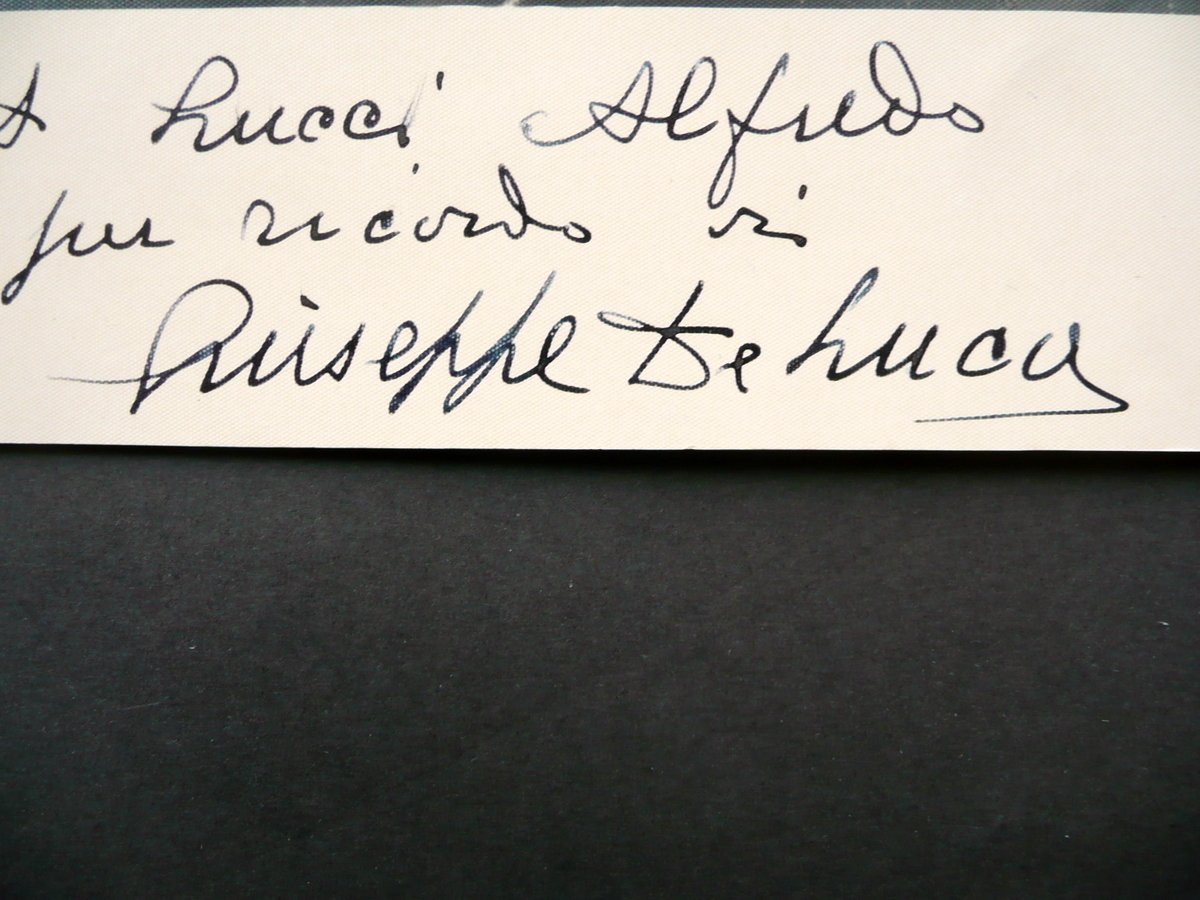 A Lucci Alfredo
per ricordo di
Giuseppe De Luca